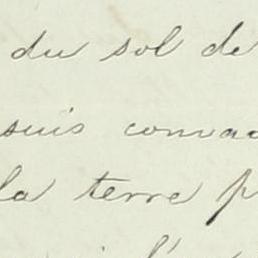 du sol de
suis convac
la terre p